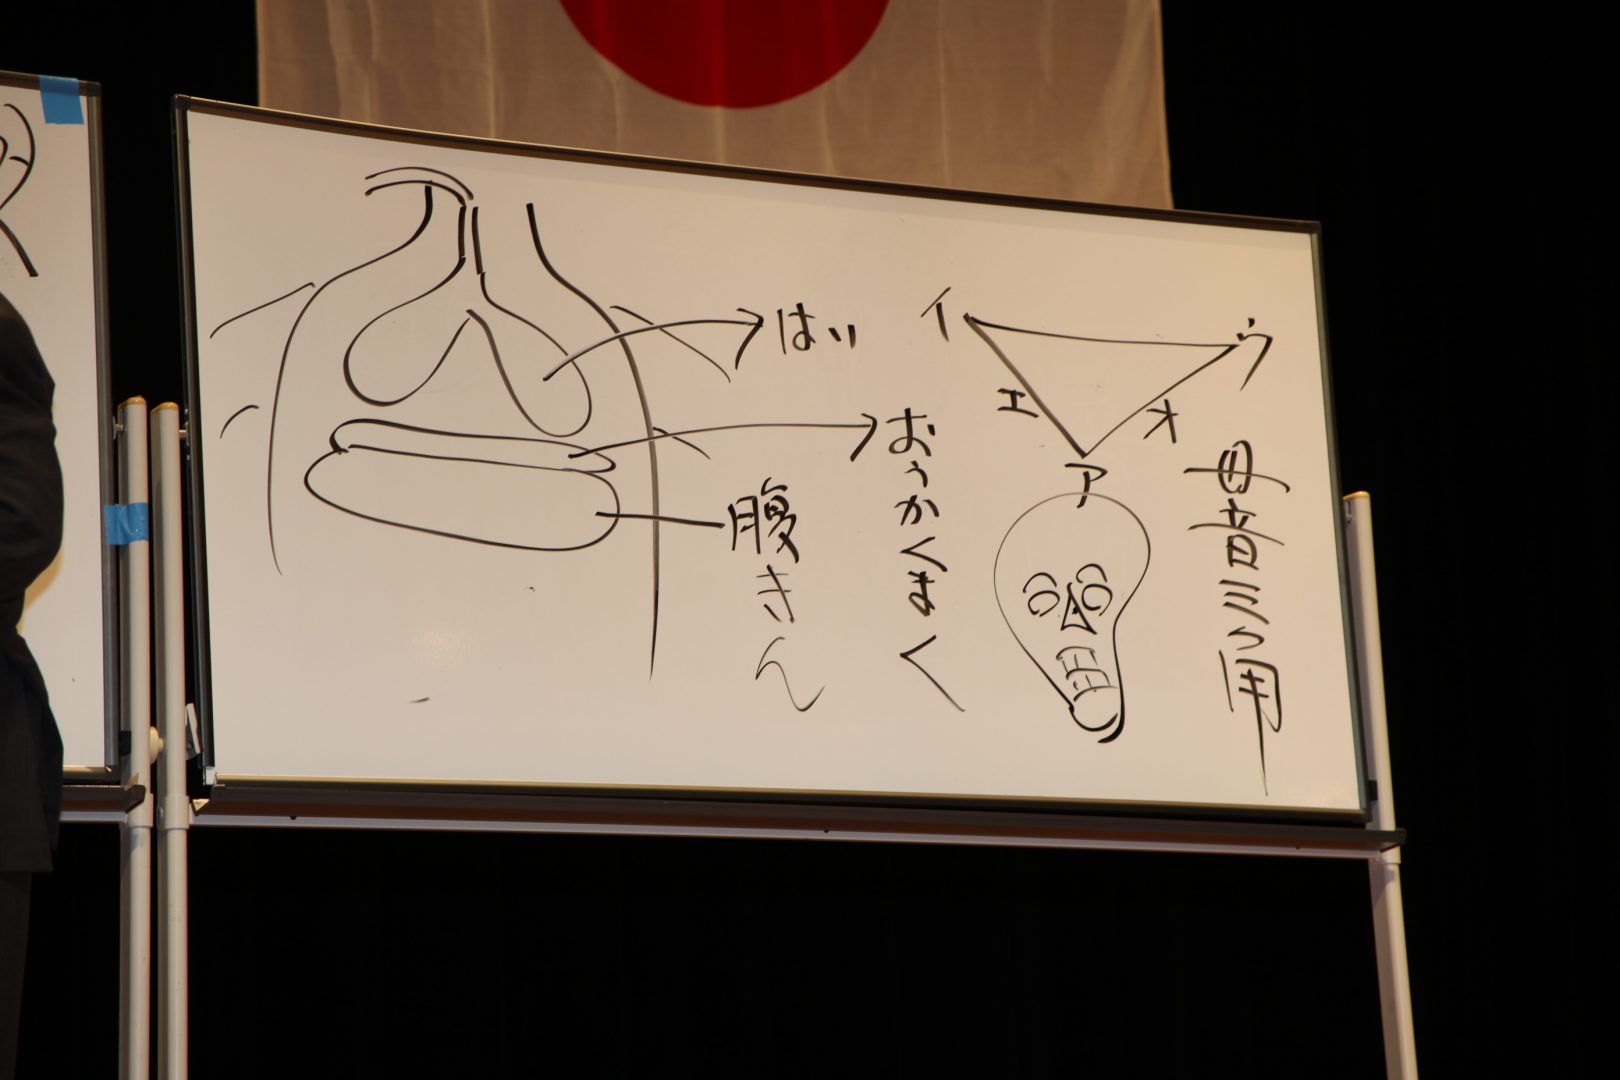 はい
おうかくまく
腹きん
イ
ウ
エ
オ
ア
母音三角